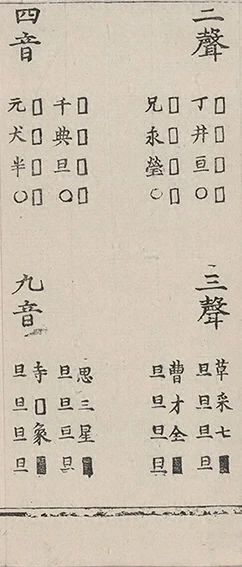 二聲
□□□□
丁井亘○
□□□□
兄永瑩○
四音
□□□□
千典旦○
□□□□
元犬半○
三聲
草采七■
旦旦旦旦
曹才全■
旦旦旦旦
九音
思三星■
旦旦亘旦
寺□象■
旦旦旦旦